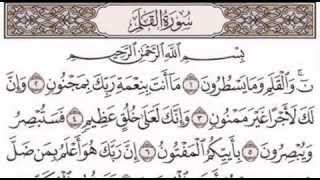 سُورَةُ القَلَمِ
بِسْمِ اللَّهِ الرَّحْمَٰنِ الرَّحِيمِ
نٓ ۚ وَالْقَلَمِ وَمَا يَسْطُرُونَ ١ مَا أَنتَ بِنِعْمَةِ رَبِّكَ بِمَجْنُونٍ ٢ وَإِنَّ
لَكَ لَأَجْرًا غَيْرَ مَمْنُونٍ ٣ وَإِنَّكَ لَعَلَىٰ خُلُقٍ عَظِيمٍ ٤ فَسَتُبْصِرُ
وَيُبْصِرُونَ ٥ بِأَييِّكُمُ الْمَفْتُونُ ٦ إِنَّ رَبَّكَ هُوَ أَعْلَمُ بِمَن ضَلَّ